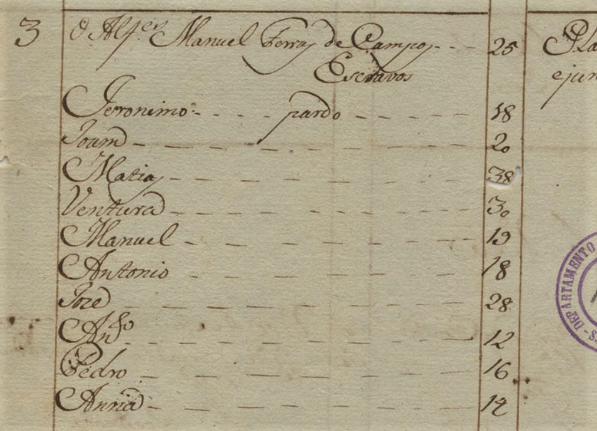 3 O Alfes Manuel Ferraz de Campos 25
Escravos
Jeronimo pardo 18
Joam 20
Matias 38
Ventura 30
Manuel 19
Antonio 18
Joze 28
Anto 12
Pedro 16
Anna 14
DEPARTAMENTO